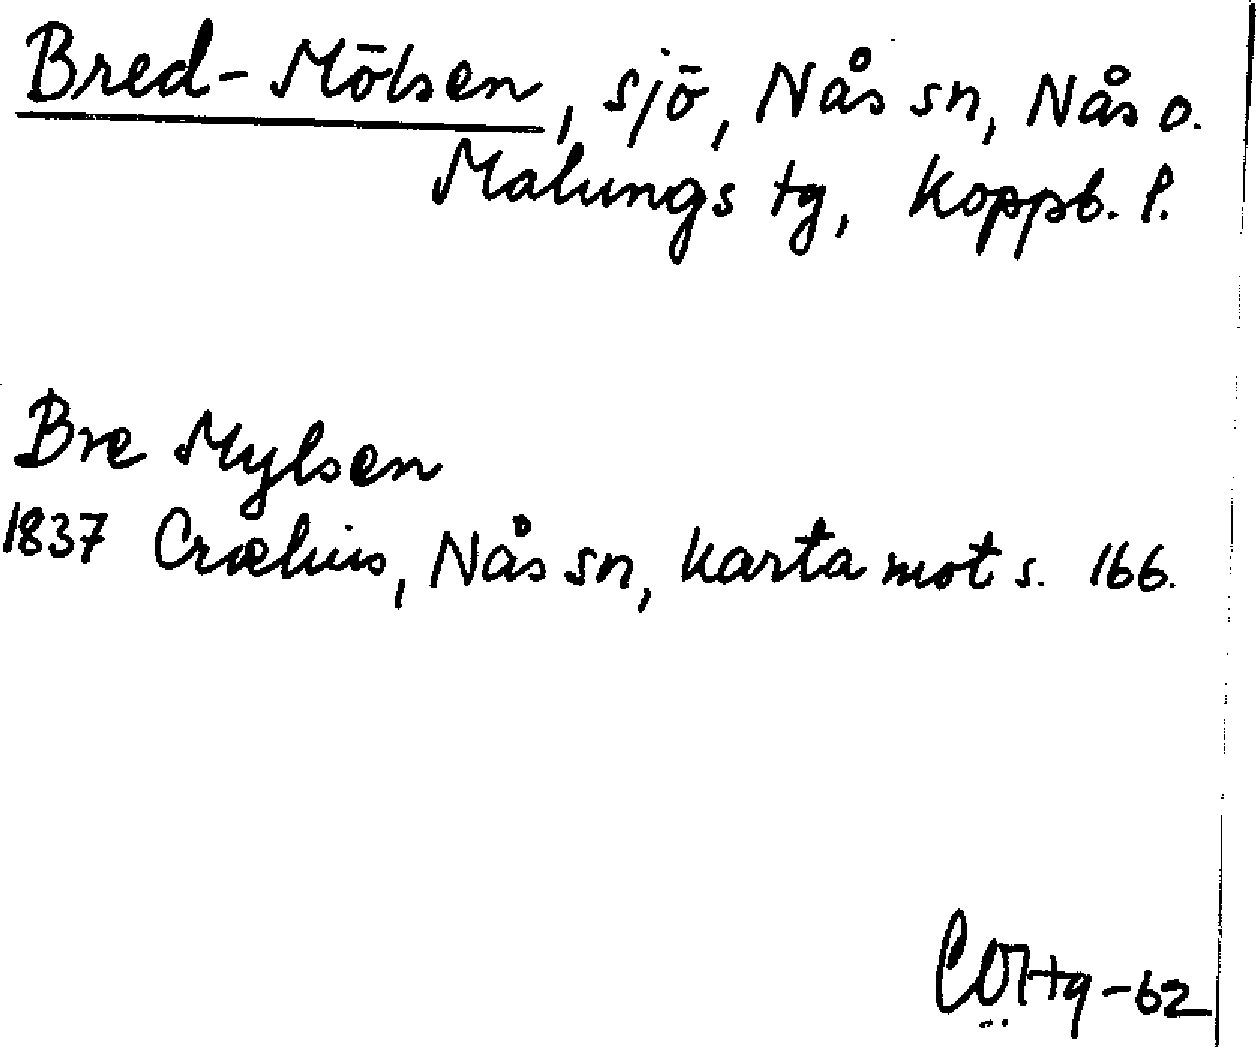 Bred-Mölsen, sjö, Nås sn, Nås o.
Malungs tg, Koppb. l.
Bre Mylsen
1837 Crælius, Nås sn, karta mot s. 166.
-62